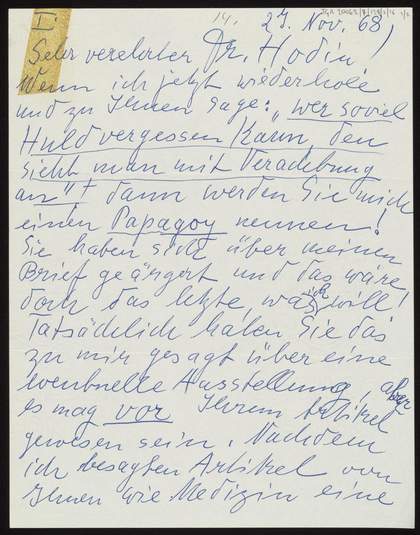 I.
14.
27. Nov. 68
Sehr verehrter Dr. Hodin!
Wenn ich jetzt wiederhole
und zu Ihnen sage: „wer soviel
Huld vergessen kann, den
sieht man mit Verachtung
an", dann werden Sie mich
einen Papagoy nennen!
Sie haben sich über meinen
Brief geärgert und das wäre
doch das letzte, was ich will!
Tatsächlich haben Sie das
zu mir gesagt über eine
eventuelle Ausstellung, aber
es mag vor Ihrem Artikel
gewesen sein. Nachdem
ich besagten Artikel von
Ihnen wie Medizin eine